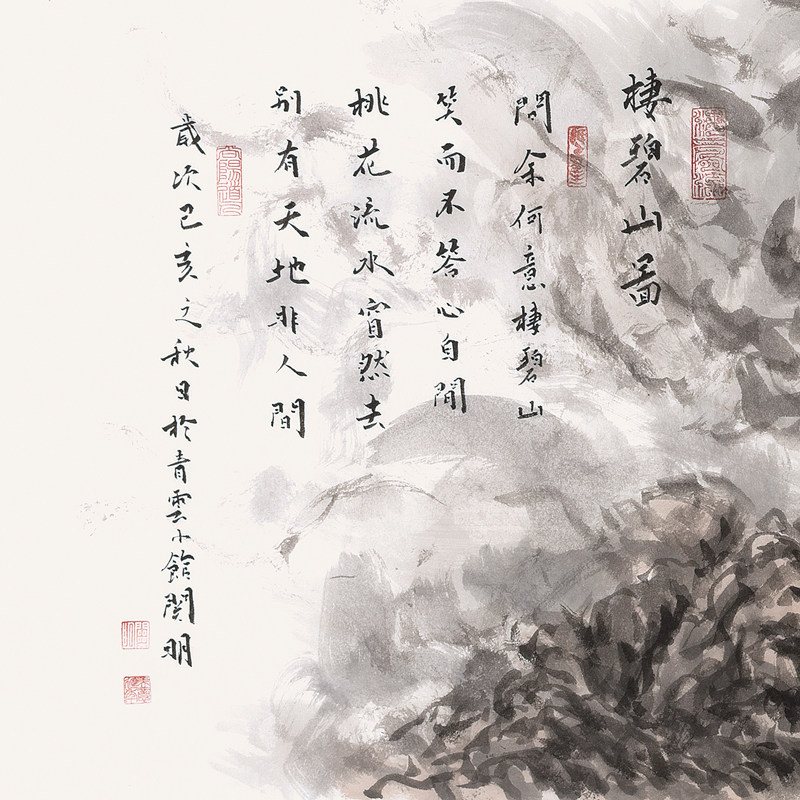 棲碧山圖
問余何意棲碧山
笑而不答心自閒
桃花流水窅然去
別有天地非人間
歲次己亥之秋日於青雲小館関明